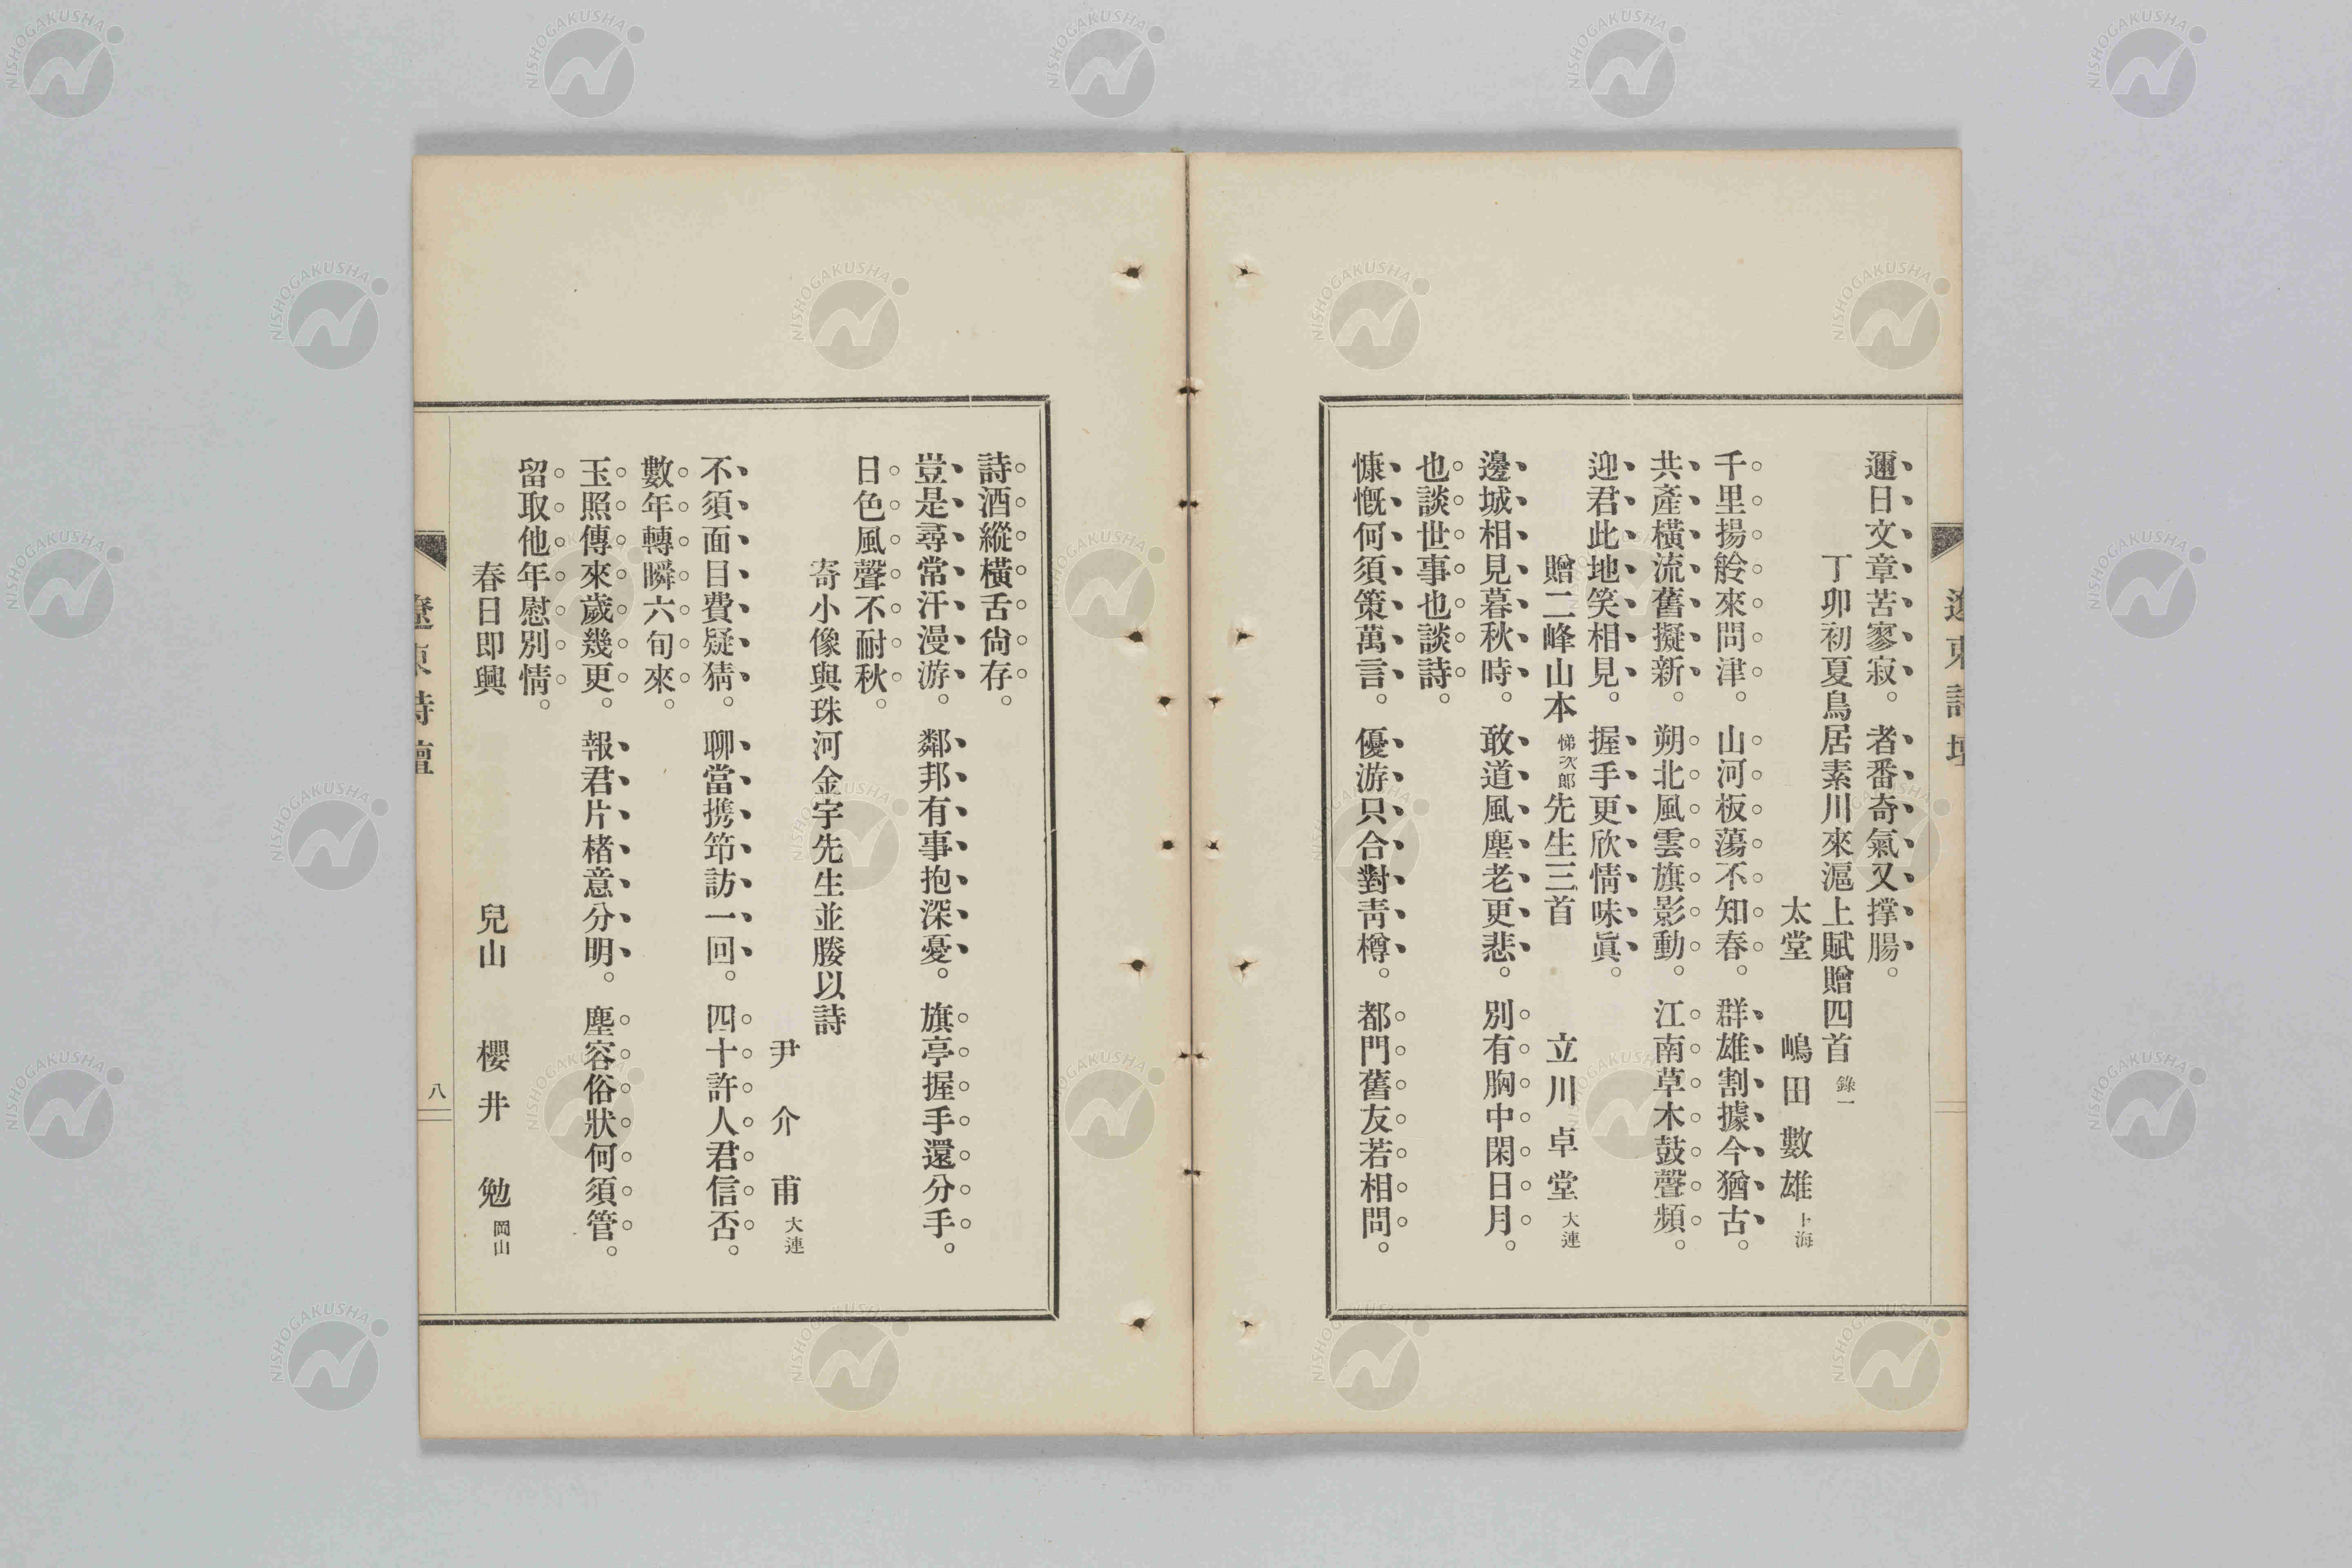 遼東詩壇
邇日文章苦寥寂。者番奇氣又撐腸。
丁卯初夏鳥居素川來滬上賦贈四首 錄一
太堂 嶋田數雄 上海
千里揚舲來問津。山河板蕩不知春。群雄割據今猶古。
共產橫流舊擬新。朔北風雲旗影動。江南草木鼓聲頻。
迎君此地笑相見。握手更欣情味眞。
贈二峰山本悌次郎先生三首 立川卓堂 大連
邊城相見暮秋時。敢道風塵老更悲。別有胸中閑日月。
也談世事也談詩。
慷慨何須策萬言。優游只合對靑樽。都門舊友若相問。
詩酒縱橫舌尙存。
豈是尋常汗漫游。鄰邦有事抱深憂。旗亭握手還分手。
日色風聲不耐秋。
寄小像與珠河金宇先生並媵以詩
尹介甫 大連
不須面目費疑猜。聊當携笻訪一回。四十許人君信否。
數年轉瞬六旬來。
玉照傳來歲幾更。報君片楮意分明。塵容俗狀何須管。
留取他年慰別情。
春日即興 兒山 櫻井勉 岡山
遼東詩壇
八
NISHOGAKUSHA